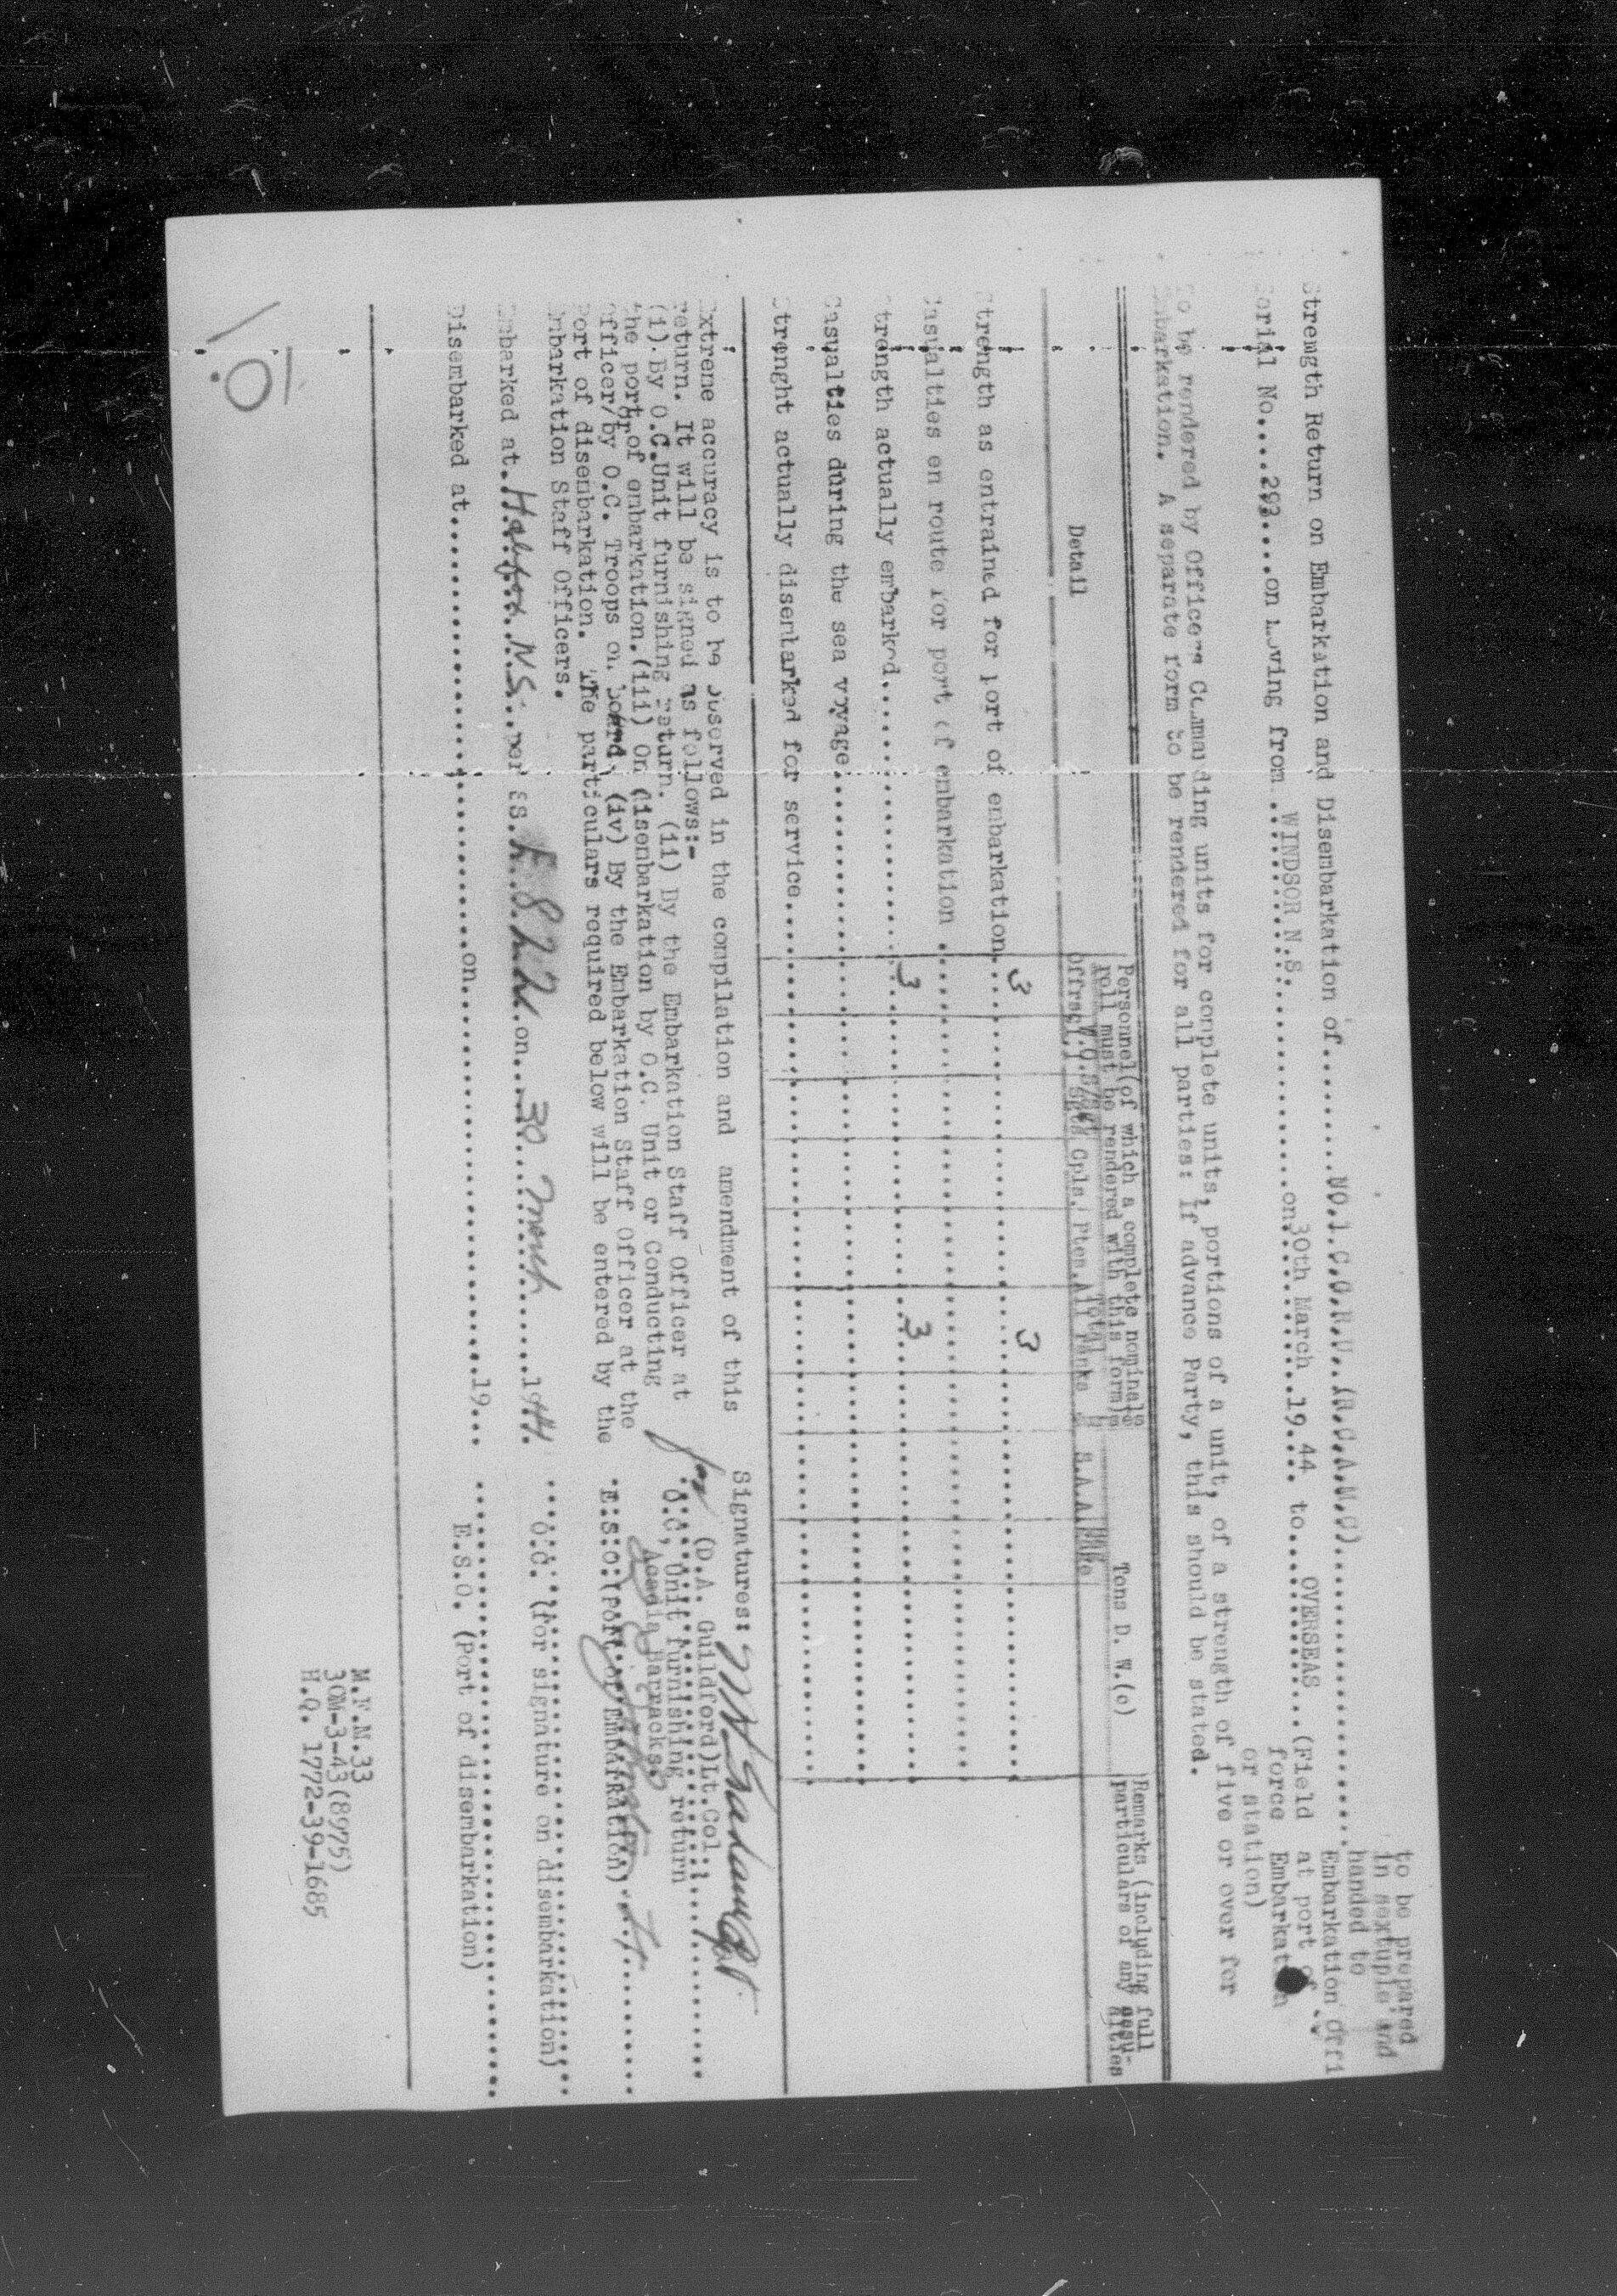 to be prepared
in sextuple and
handed to
Strength Return on Embarkation and Disembarkation of.........NO.1.C.O.R.U..(R.C.A.M.C)..............
Embarkation Offi
Serial No....293....on Leaving from..WINDSOR N.S...............on 30th March..19.44. to....OVERSEAS....(Field
at port of
force Embarkation
or station)
To be rendered by Officers Commanding units for complete units, portions of a unit, of a strength of five or over for
Embarkation. A separate form to be rendered for all parties: if advance Party, this should be stated.
Personnel(of which a complete nominal
roll must be rendered with this form)
Tons D. W.(e)
Remarks (including full
particulars of any casu-
alties
Detail
Offrs Cl.1 Sgts Cpls. Ptes. All ranks S.A.A.
Total
Strength as entrained for port of embarkation.. 3 3
Casualties en route for port of embarkation
Strength actually embarked.................... 3 3
Casualties during the sea voyage..............
Strenght actually disembarked for service.....
Extreme accuracy is to be observed in the compilation and amendment of this
return. It will be signed as follows:-
(i). By O.C. Unit furnishing return. (ii) By the Embarkation Staff Officer at
the port of embarkation.(iii) On disembarkation by O.C. Unit or Conducting
Officer/or by O.C. Troops on board (iv) By the Embarkation Staff Officer at the
Port of disembarkation. The particulars required below will be entered by the
Embarkation Staff Officers.
Signatures:
for (D.A. Guildford)Lt.Col.,
O.C, Unit furnishing return
Acadia Barracks.
E.S.O.(Port of Embarkation)
Embarked at..Halifax..N.S...per SS.........on....30...March......1944.
O.C. (for signature on disembarkation)
Disembarked at..............................on.....................19...
E.S.O. (Port of disembarkation)
M.F.M.33
30M-3-43(8975)
H.Q. 1772-39-1685
10.